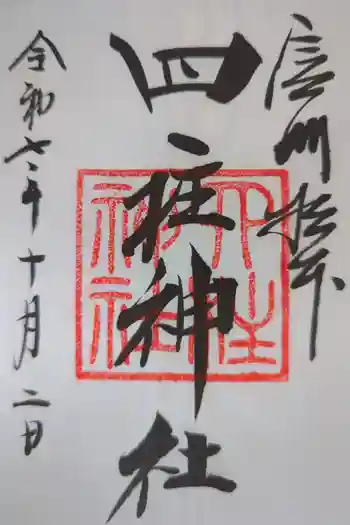 信州松本
四柱神社
四柱神社
令和七年十月二日